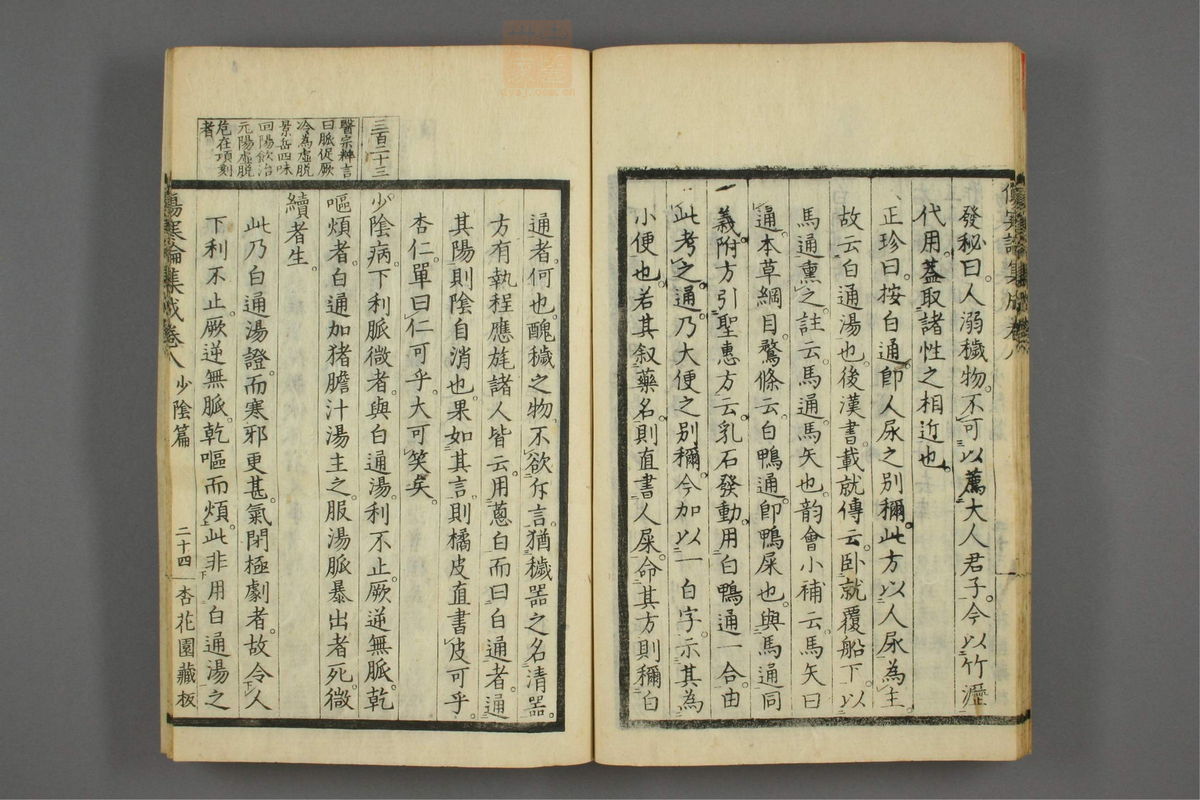 發秘曰人溺穢物不可以薦大人君子今以竹瀝
代用蓋取諸性之相近也
正珍曰按白通即人尿之別稱此方以人尿為主
故云白通湯也後漢書載就傳云臥就覆船下以
馬通熏之註云馬通馬矢也韵會小補云馬矢曰
通本草綱目鶩條云白鴨通即鴨屎也與馬通同
義附方引聖惠方云乳石發動用白鴨通一合由
此考之通乃大便之別稱今加以一白字示其為
小便也若其叙藥名則直書人屎命其方則稱白
傷寒論集成卷八
通者何也醜穢之物不欲斥言猶穢器之名清器
方有執程應旄諸人皆云用蔥白而曰白通者通
其陽則陰自消也果如其言則橘皮直書皮可乎
杏仁單曰仁可乎大可笑矣
少陰病下利脈微者與白通湯利不止厥逆無脈乾
嘔煩者白通加猪膽汁湯主之服湯脈暴出者死微
續者生
此乃白通湯證而寒邪更甚氣閉極劇者故令人
下利不止厥逆無脈乾嘔而煩此非用白通湯之
三百二十三
醫宗辨言
曰脈促厥
冷為虛脫
景岳四味
回陽飲治
元陽虛脫
危在項刻
者
傷寒論集成卷八 少陰篇 二十四 杏花園藏板